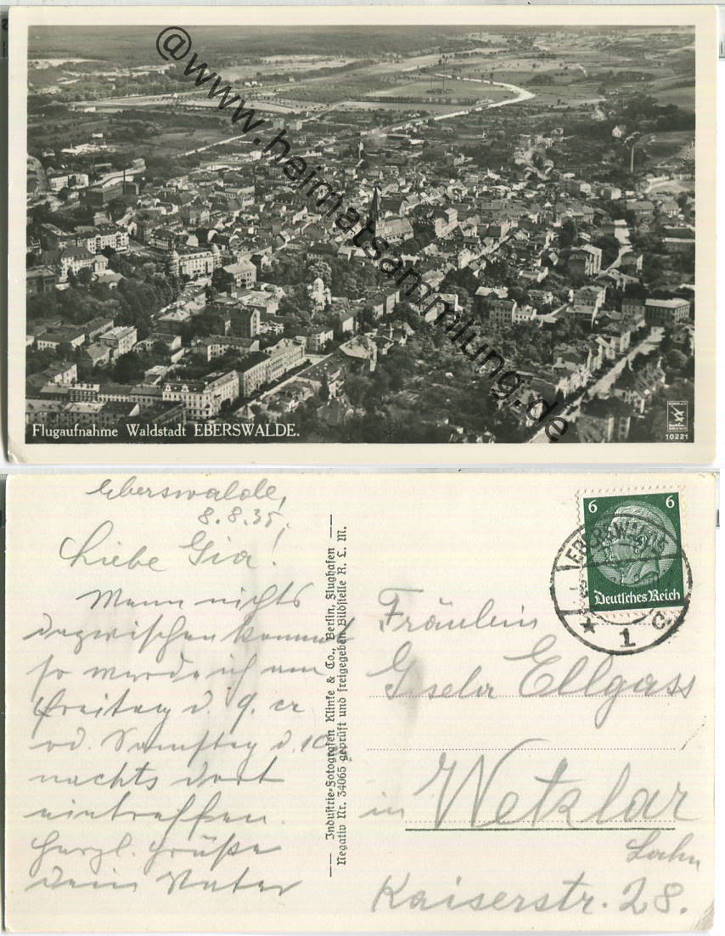 @www.heimatsammlung.de
Flugaufnahme Waldstadt EBERSWALDE.
10221
Eberswalde,
8.8.35.
Liebe Gia!
Wenn nichts
dazwischen kommt
so werde ich am
Freitag d. 9. er
od. Samstag d. 10.
nachts dort
eintreffen.
Herzl. Grüße
Dein Vater
Industrie-Fotografen Klinke & Co., Berlin, Flughafen
Negativ Nr. 34065 geprüft und freigegeben Bildstelle R. L. M.
6 6
Deutsches Reich
EBERSWALDE
* 1 c
Fräulein
Gisela Ellgass
in Wetzlar
Lahn
Kaiserstr. 28.